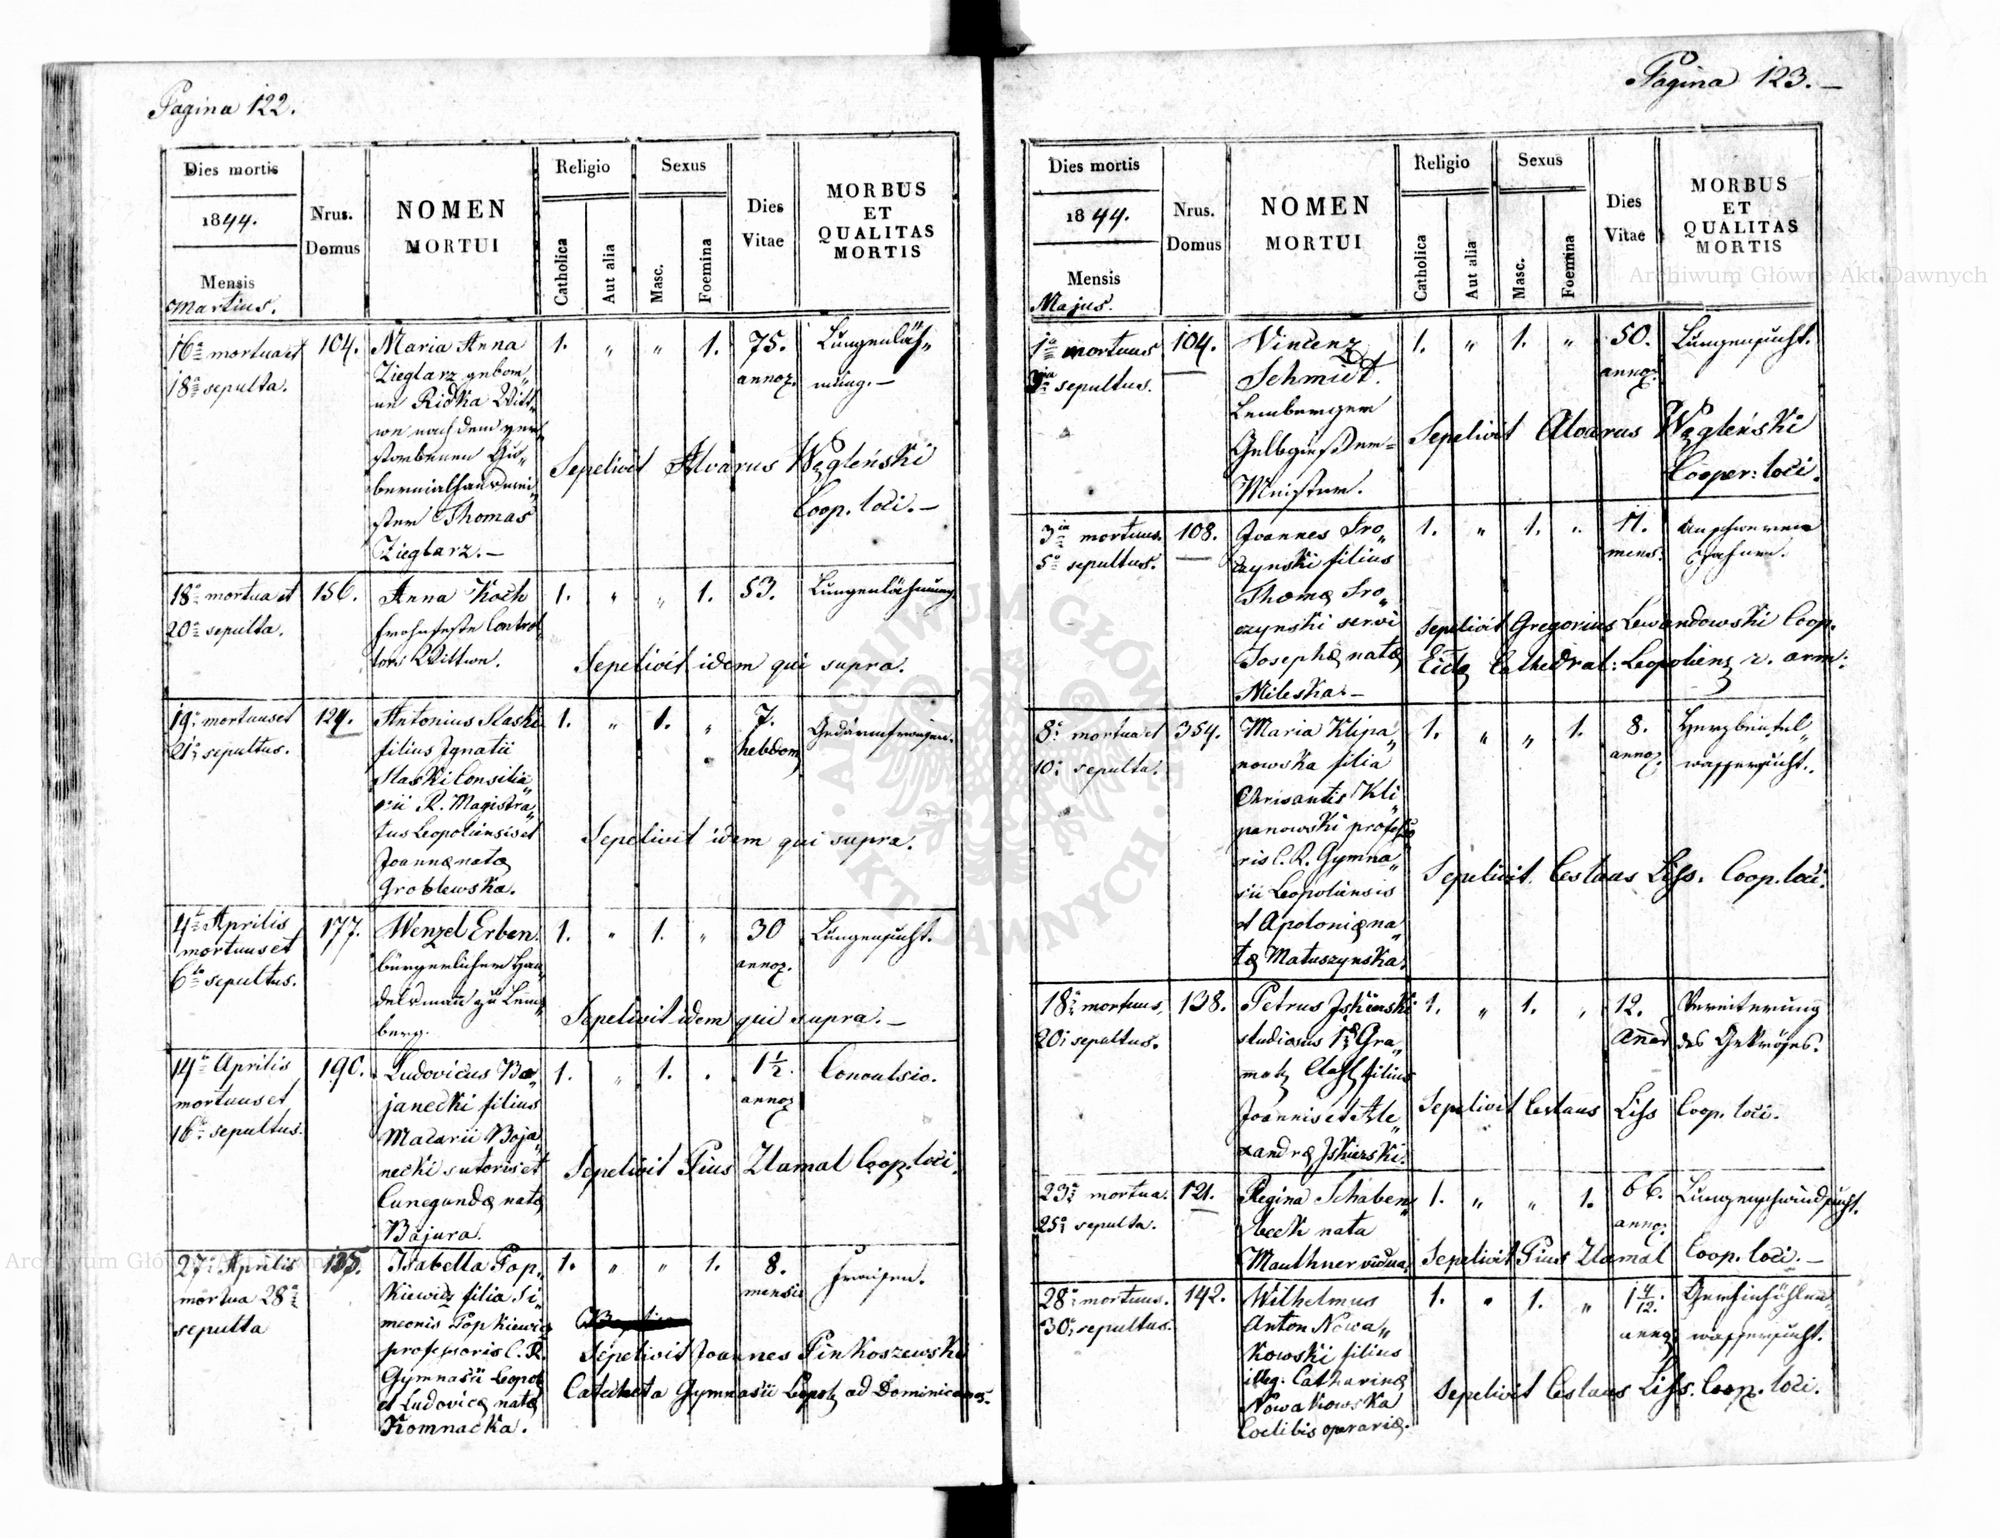 Pagina 122.
Dies mortis
1844.
Mensis
Martius.
Nrus.
Domus
NOMEN
MORTUI
Religio
Catholica
Aut alia
Sexus
Masc.
Foemina
Dies
Vitae
MORBUS
ET
QUALITAS
MORTIS
16a mortua et
18a sepulta.
104.
Maria Anna
Zieglarz gebor„
ne Ridka Witt„
we nach dem ver„
storbenen Gu„
bernial
ster Thomas
Zieglarz.—
1. „ „ 1. 75.
annoz.
Lungenläh„
mung.—
Sepelivit Alvarus Węgleński
Coop. loci.—
18a mortua et
20a sepulta.
156.
Anna Koch
Frohnfeste Control
lors Wittwe.
1. „ „ 1. 53.
Lungenlähmung.
Sepelivit idem qui supra.
19a mortuus et
21a sepultus.
124.
Antonius Slaski
filius Ignatii
Slaski Consilia„
rii R. Magistra„
tus Leopoliensis et
Joannæ natæ
Groblewska.
1. „ 1. „ 7.
hebdom
Sepelivit idem qui supra.
4ta Aprilis
mortuus et
6ta sepultus.
177.
Wenzel Erben.
bürgerlicher Han„
delsmann zu Lem„
berg.
1. „ 1. „ 30
annoz.
Lungensucht.
Sepelivit idem qui supra.—
14a Aprilis
mortuus et
16a sepultus.
190.
Ludovicus Bo„
janecki filius
Macarii Boja„
necki sutoris et
Cunegundæ natæ
Bajura.
1. „ 1. „ 1½.
annoz
Convulsio.
Sepelivit Pius Zlamal Coop. loci.
27a Aprilis
mortua 28a
sepulta
135.
Isabella Pop„
kiewicz filia Si„
meonis Popkiewicz
professoris C. R.
Gymnasii Leopol
et Ludovicæ natæ
Komnacka.
1. „ „ 1. 8.
mensis
Fraisen.
Sepelivit Joannes Pinkoszewski
Catecheta Gymnasii Leopol ad Dominicanos.
Pagina 123.—
Dies mortis
1844.
Mensis
Majus.
Nrus.
Domus
NOMEN
MORTUI
Religio
Catholica
Aut alia
Sexus
Masc.
Foemina
Dies
Vitae
MORBUS
ET
QUALITAS
MORTIS
1a mortuus
3ia sepultus.
104.
Vincenz
Schmidt.
Lemberger
Gelbgießer=
Meister.
1. „ 1. „ 50.
annoz.
Lungensucht.
Sepelivit Alvarus Węgleński
Cooper: loci.
3ia mortuus.
5a sepultus.
108.
Joannes Sro„
czynski filius
Thomæ Sro„
czynski servi
Josephæ natæ
Mileska.—
1. „ 1. „ 11.
mens.
an schweren
Zahnen.
Sepelivit Gregorius Lewandowski Coop.
Cathedral: Leopoliens r. arm:
8a mortua et
10a sepulta.
354.
Maria Klipa„
nowska filia
Chrisantis Kli„
panowski profeso
ris C. R. Gymna„
sii Leopoliensis
et Apoloniæ na„
tæ Matuszynska.
1. „ „ 1. 8.
annoz.
Herzbeutel„
wassersucht.
Sepelivit Ceslaus Liss. Coop. loci.
18a mortuus.
20a sepultus.
138.
Petrus Jskierski
studiosus Gra„
mat. Class filius
Joannis et Ale„
xandræ Jskierski.
1. „ 1. „ 12.
Vereiterung
des Gekröses.
Sepelivit Ceslaus Liss Coop. loci.
23a mortua.
25a sepulta.
121.
Regina Schaben„
beck nata
Mauthner vidua.
1. „ „ 1. 66.
annoz.
Lungenschwindsucht.
Sepelivit Pius Zlamal Coop. loci.—
28a mortuus.
30a sepultus.
142.
Wilhelmus
Anton Nowa„
kowski filius
illeg. Catharinæ
Nowakowska
Coelibis operariæ.
1. „ 1. „ 1 4/12.
annoz
Gehirnhöhlen„
wassersucht.
Sepelivit Ceslaus Liss. Coop. loci.
Archiwum Główne Akt Dawnych
Archiwum Główne Akt Dawnych
ARCHIWUM GŁÓWNE AKT DAWNYCH